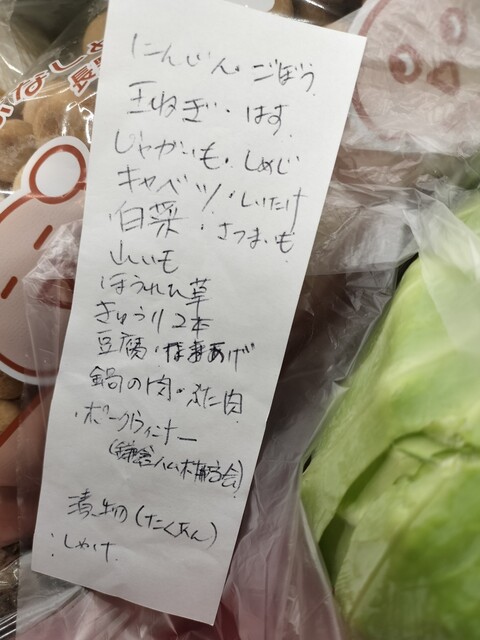 にんじん・ごぼう
玉ねぎ・はす
じゃがいも・しめじ
キャベツ・しいたけ
白菜・さつまいも
山いも
ほうれん草
きゅうり2本
豆腐・あげ
鍋の肉・ぶた肉
・ポークウィンナー
(鎌倉ハム
漬物(たくあん)
しゃけ